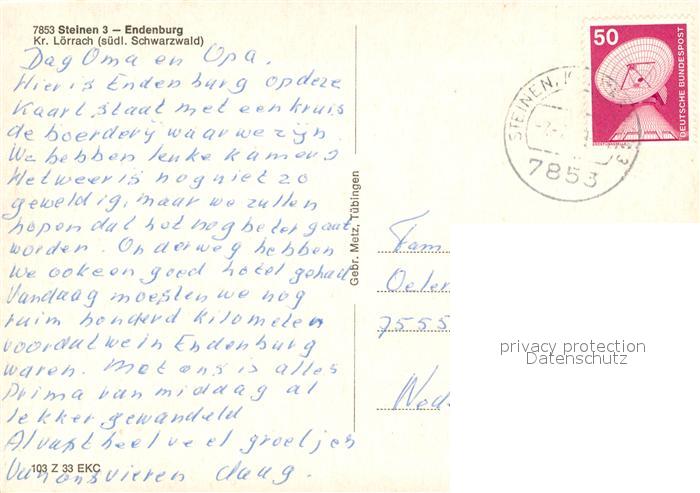 7853 Steinen 3 – Endenburg
Kr. Lörrach (südl. Schwarzwald)
Dag Oma en Opa.
Hier is Endenburg op deze
kaart staat met een kruis
de boerderij waar we zijn.
We hebben leuke kamers
Het weer is nog niet zo
geweldig, maar we zullen
hopen dat het nog beter gaat
worden. Onderweg hebben
we ook een goed hotel gehad
Vandaag moesten we nog
ruim honderd kilometer
voordat we in Endenburg
waren. Met ons is alles
Prima van middag al
lekker gewandeld
Alvast heel veel groetjes
Van ons vieren daag.
103 Z 33 EKC
Gebr. Metz, Tübingen
50
DEUTSCHE BUNDESPOST
STEINEN, K
7853
Fam
Oeler
7555
Ned
privacy protection
Datenschutz